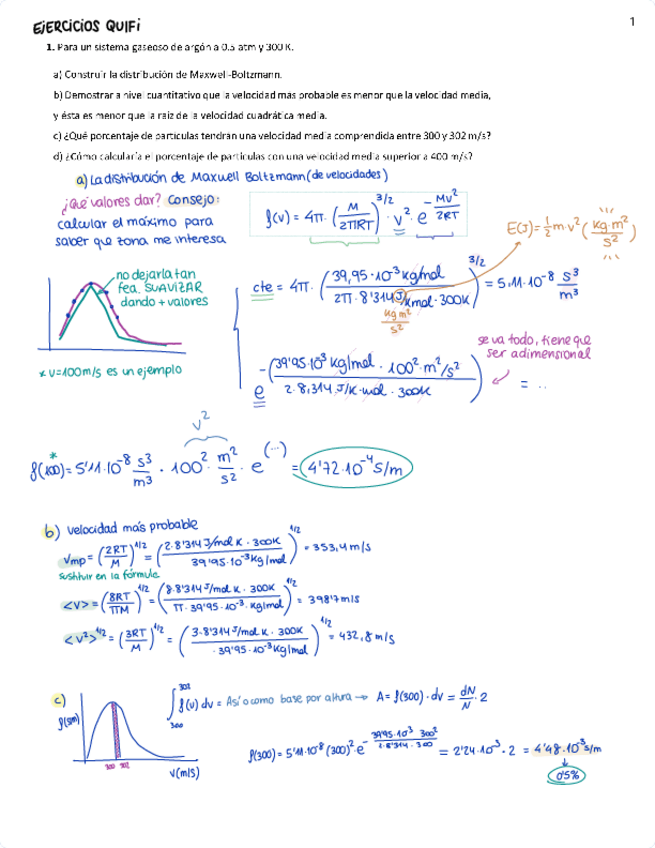 EJERCICIOS QUIFI
1
1. Para un sistema gaseoso de argón a 0.5 atm y 300 K.
a) Construir la distribución de Maxwell-Boltzmann.
b) Demostrar a nivel cuantitativo que la velocidad más probable es menor que la velocidad media,
y ésta es menor que la raíz de la velocidad cuadrática media.
c) ¿Qué porcentaje de partículas tendrán una velocidad media comprendida entre 300 y 302 m/s?
d) ¿Cómo calcularía el porcentaje de partículas con una velocidad media superior a 400 m/s?
a) La distribución de Maxwell Boltzmann (de velocidades)
¿Qué valores dar? Consejo:
calcular el máximo para
saber que zona me interesa
f(v) = 4π · (M/2πRT)^3/2 · v² · e^(-Mv²/2RT)
E(J) = 1/2 m·v² (kg·m²/s²)
no dejarla tan
fea. SUAVIZAR
dando + valores
* v=100m/s es un ejemplo
cte = 4π · (39,95·10⁻³ kg/mol / 2π·8'314 J/K mol·300K)^3/2 = 5,11·10⁻⁸ s³/m³
kg m²/s²
se va todo, tiene que
ser adimensional
e^-(39'95·10³ kg/mol · 100² · m²/s² / 2·8,314 J/K·mol · 300K) = ...
v²
f(100)* = 5'11·10⁻⁸ s³/m³ · 100² · m²/s² · e^(...) = 4'72·10⁻⁴ s/m
b) velocidad más probable
Vmp = (2RT/M)^1/2 = (2·8'314 J/mol K · 300K / 39'95·10⁻³ kg/mol)^1/2 = 353,4 m/s
sustituir en la fórmula
<v> = (8RT/πM)^1/2 = (8·8'314 J/mol K · 300K / π·39'95·10⁻³ · kg/mol)^1/2 = 398'7 m/s
<v²>^1/2 = (3RT/M)^1/2 = (3·8'314 J/mol K · 300K / ·39'95·10⁻³ kg/mol)^1/2 = 432,8 m/s
c)
f(s/m)
300 302
v(m/s)
∫₃₀₀³⁰² f(v) dv = Así o como base por altura → A = f(300) · dv = dN/N · 2
f(300) = 5'11·10⁻⁸ (300)² · e^-(39'95·10³ 300² / 2·8'314·300) = 2'24·10⁻³ · 2 = 4'48·10⁻³ s/m
0'5%